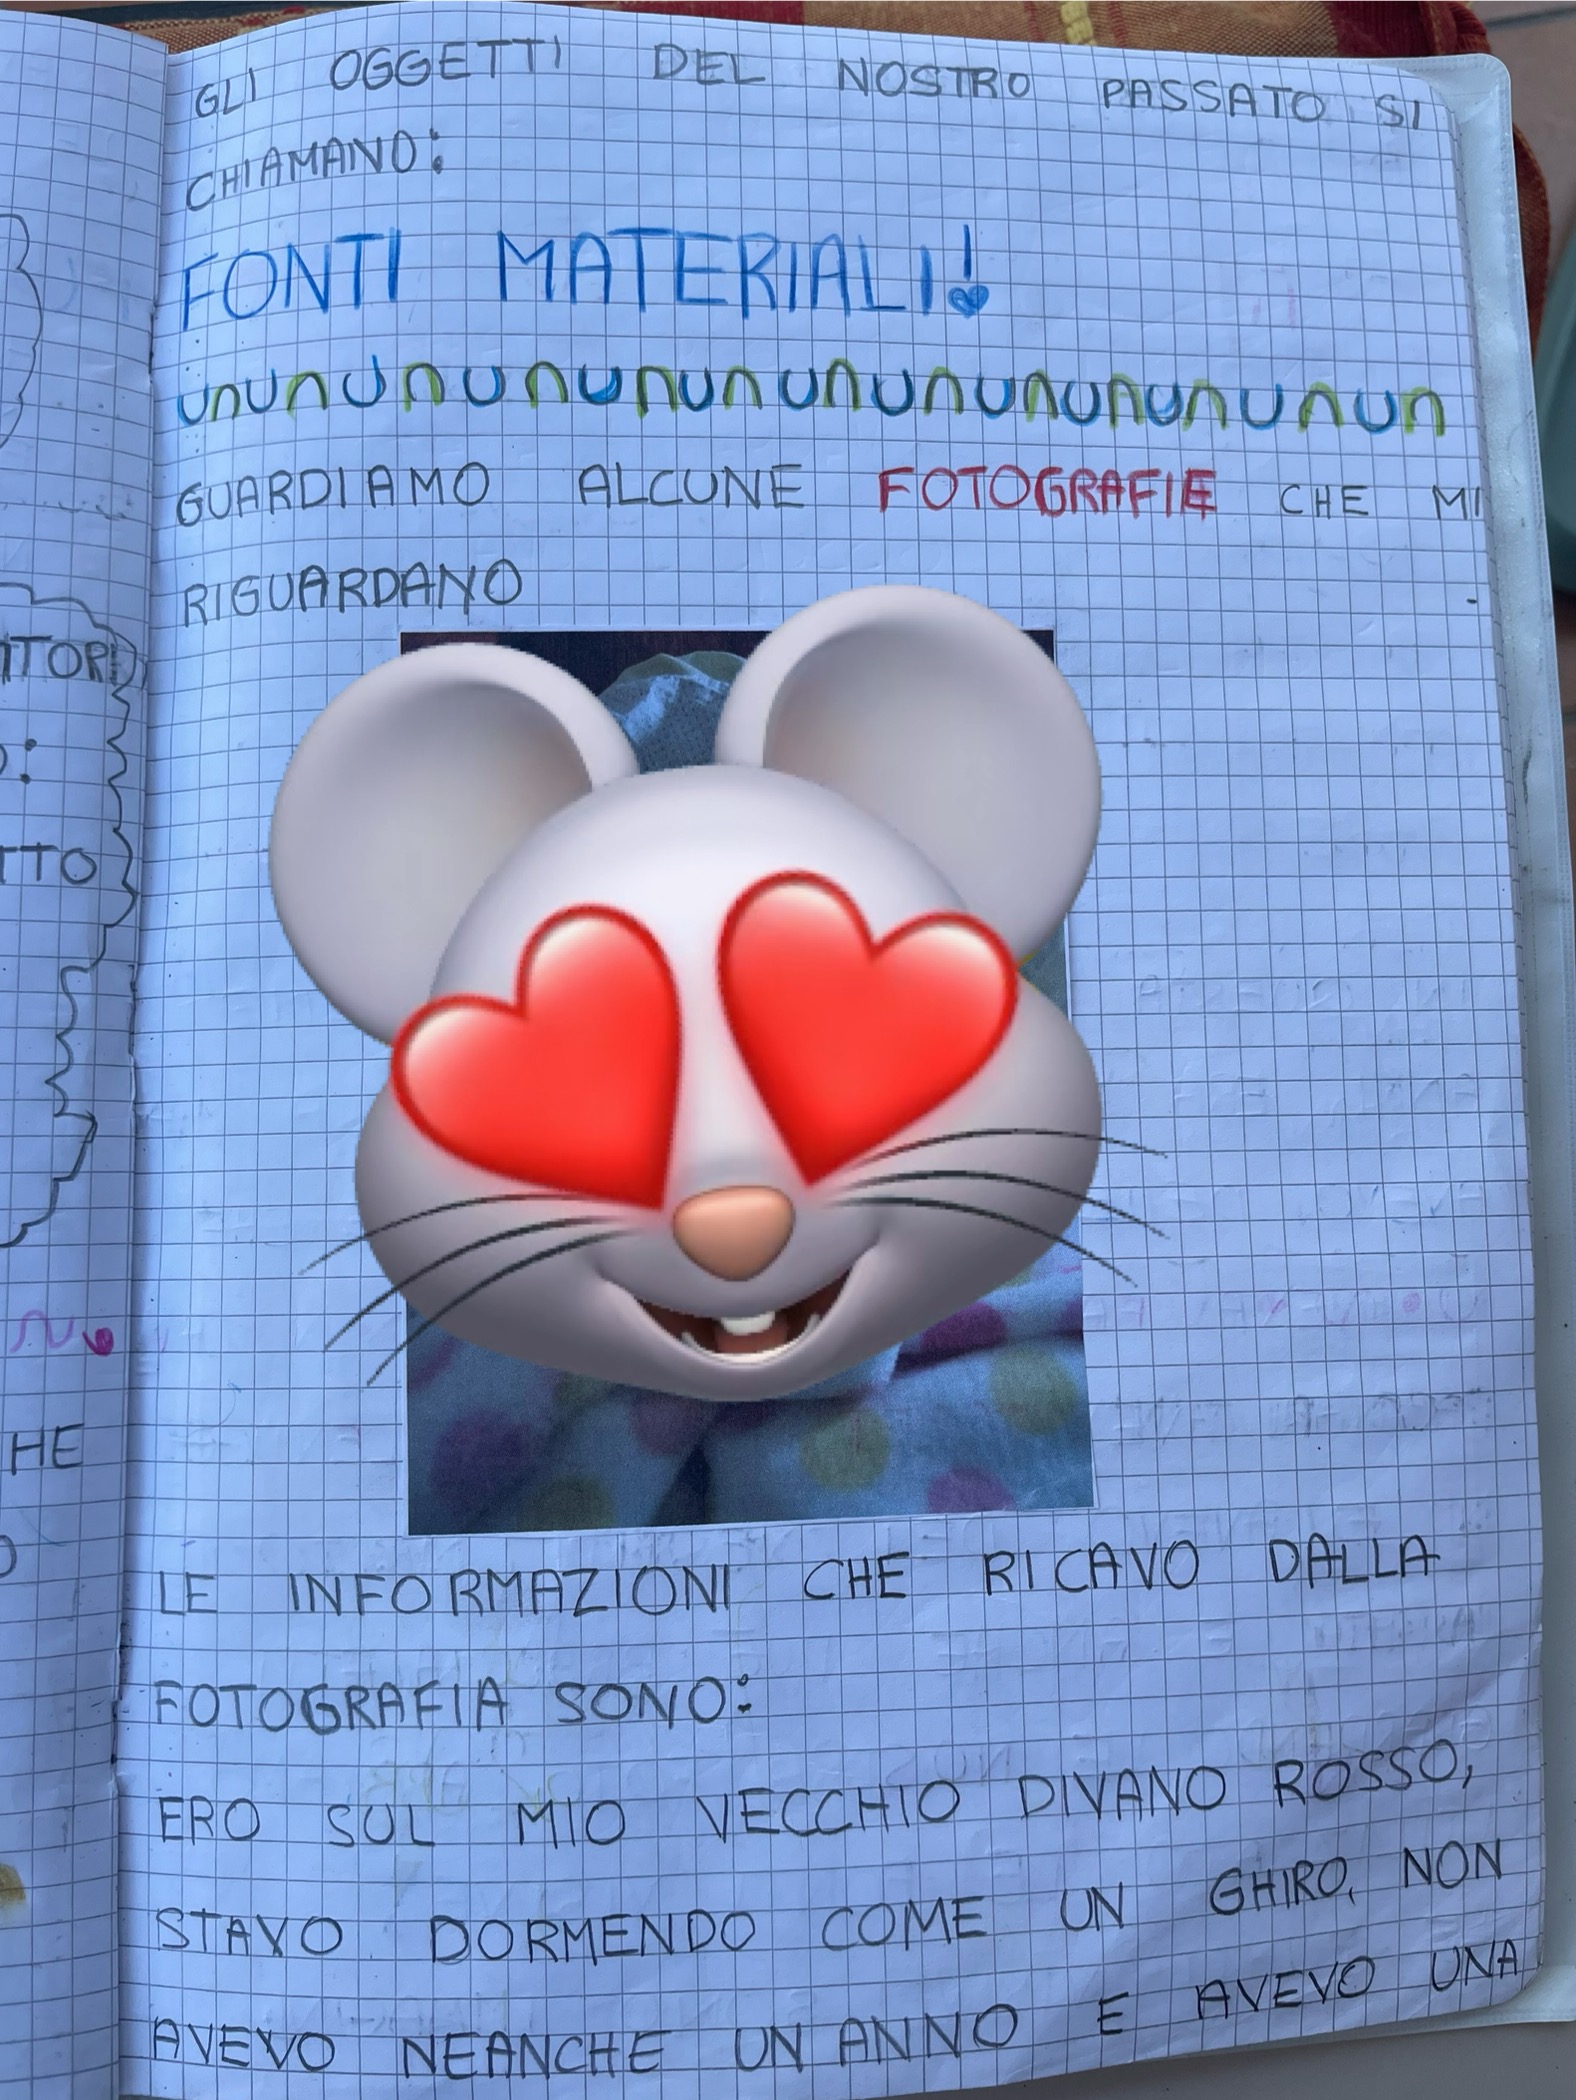 GLI OGGETTI DEL NOSTRO PASSATO SI
CHIAMANO:
FONTI MATERIALI!
GUARDIAMO ALCUNE FOTOGRAFIE CHE MI
RIGUARDANO
LE INFORMAZIONI CHE RICAVO DALLA
FOTOGRAFIA SONO:
ERO SUL MIO VECCHIO DIVANO ROSSO,
STAVO DORMENDO COME UN GHIRO, NON
AVEVO NEANCHE UN ANNO E AVEVO UNA